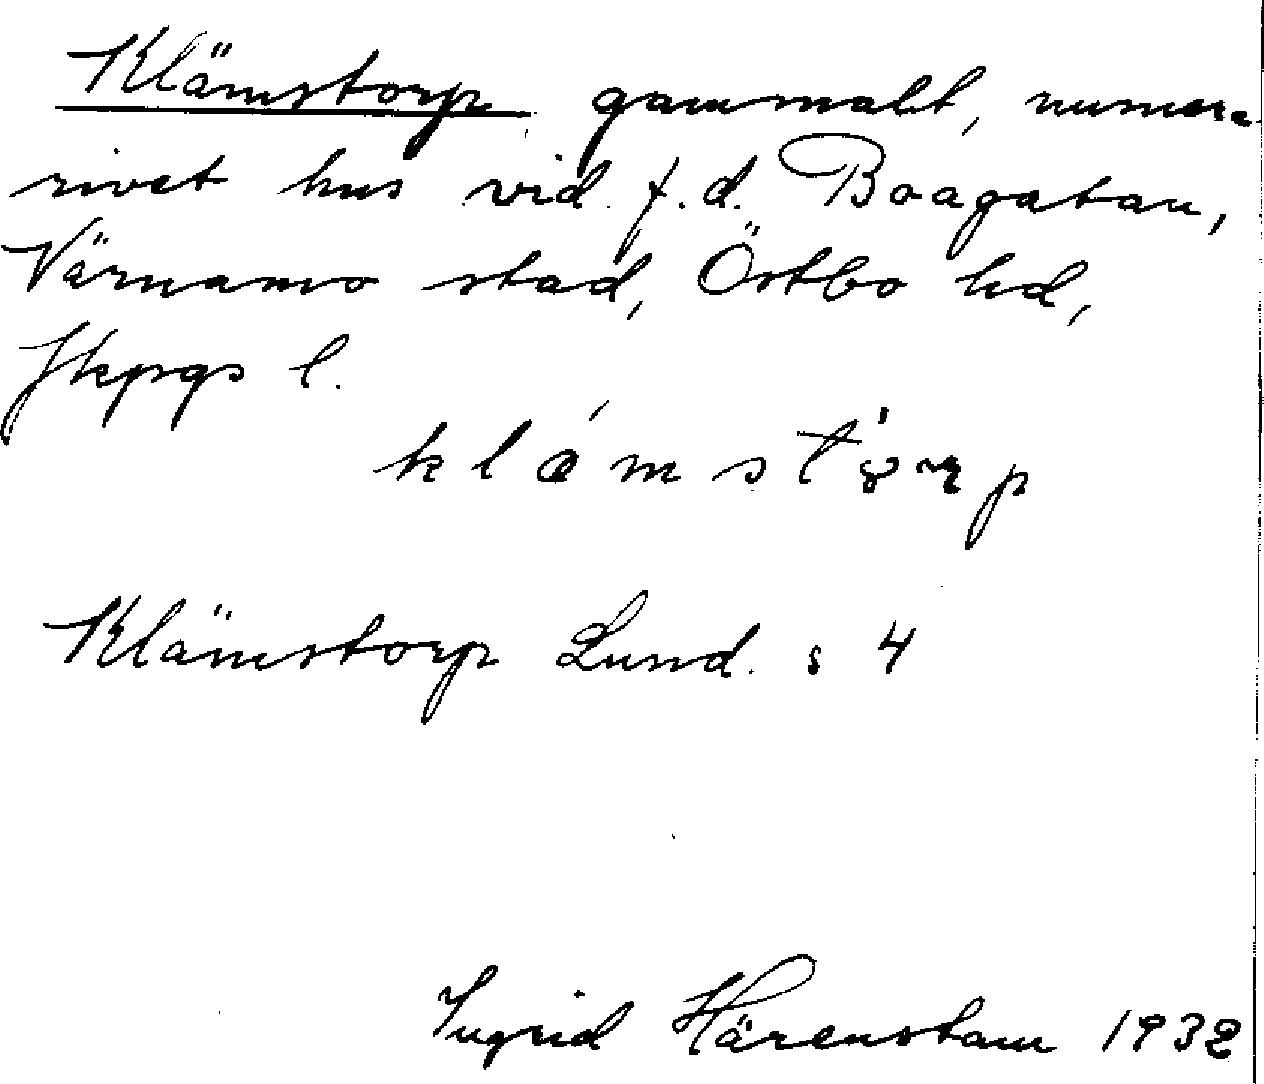 Klämstorp gammalt, numer-
rivet hus vid f.d. Boagatan,
Värnamo stad, Östbo hd,
Jkpgs l.
Klämstorp Lund. s 4
Ingrid Härenstam 1932